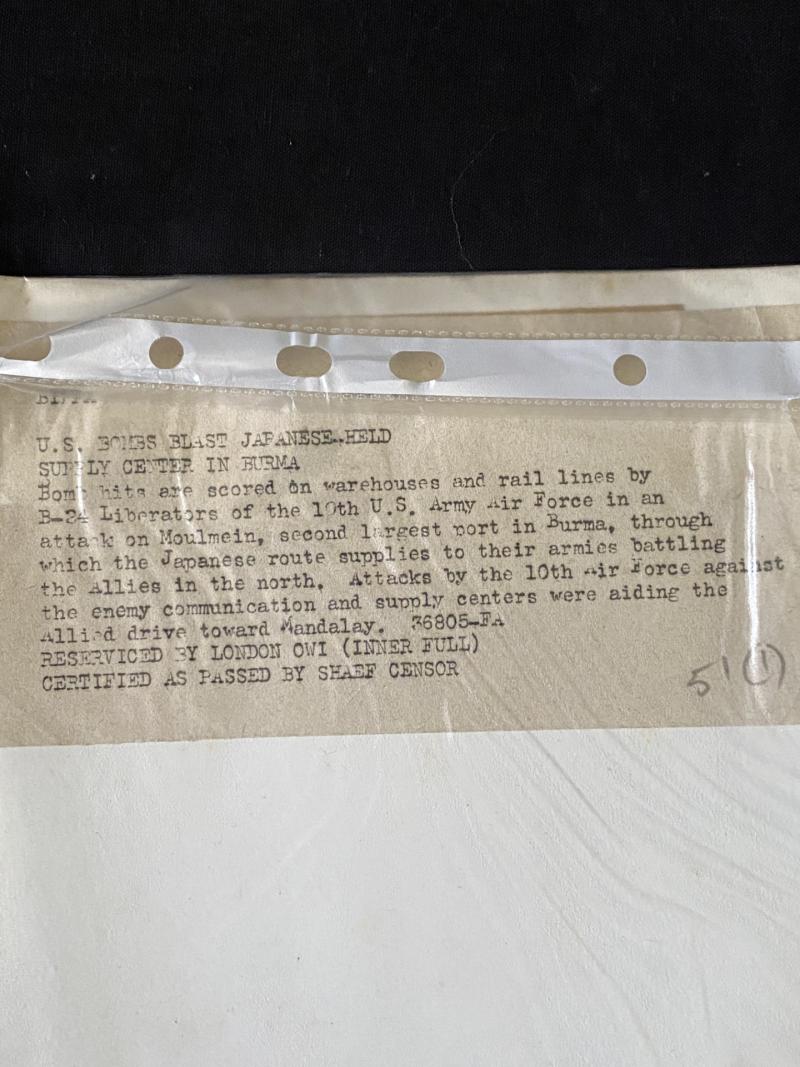 U.S. BOMBS BLAST JAPANESE-HELD
SUPPLY CENTER IN BURMA
Bomb hits are scored on warehouses and rail lines by
B-24 Liberators of the 10th U.S. Army Air Force in an
attack on Moulmein, second largest port in Burma, through
which the Japanese route supplies to their armies battling
the Allies in the north. Attacks by the 10th Air Force against
the enemy communication and supply centers were aiding the
Allied drive toward Mandalay. 36805-FA
RESERVICED BY LONDON OWI (INNER FULL)
CERTIFIED AS PASSED BY SHAEF CENSOR
5'(1)